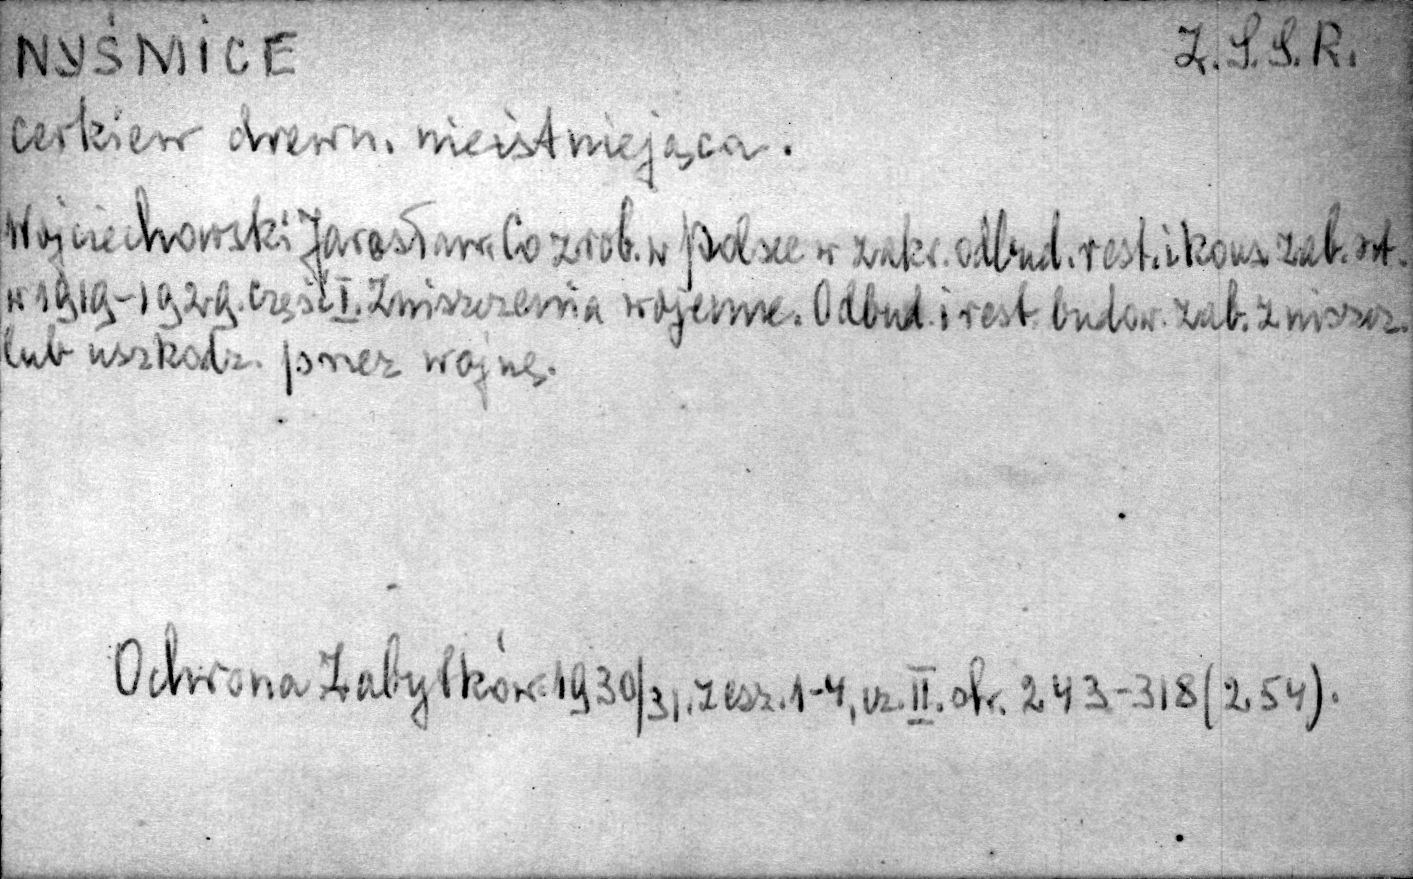 NYŚMICE Z.S.S.R.
cerkiew drewn. nieistniejąca.
Wojciechowski Jarosław. Co zrob. w Polsce w zakr. odbud. rest. i kons. zab. szt.
w 1919-1929. Część I. Zniszczenia wojenne. Odbud. i rest. budow. zab. zniszcz.
lub uszkodz. przez wojnę.
Ochrona Zabytków. 1930/31. zesz. 1-4, cz. II. str. 243-318 (254).